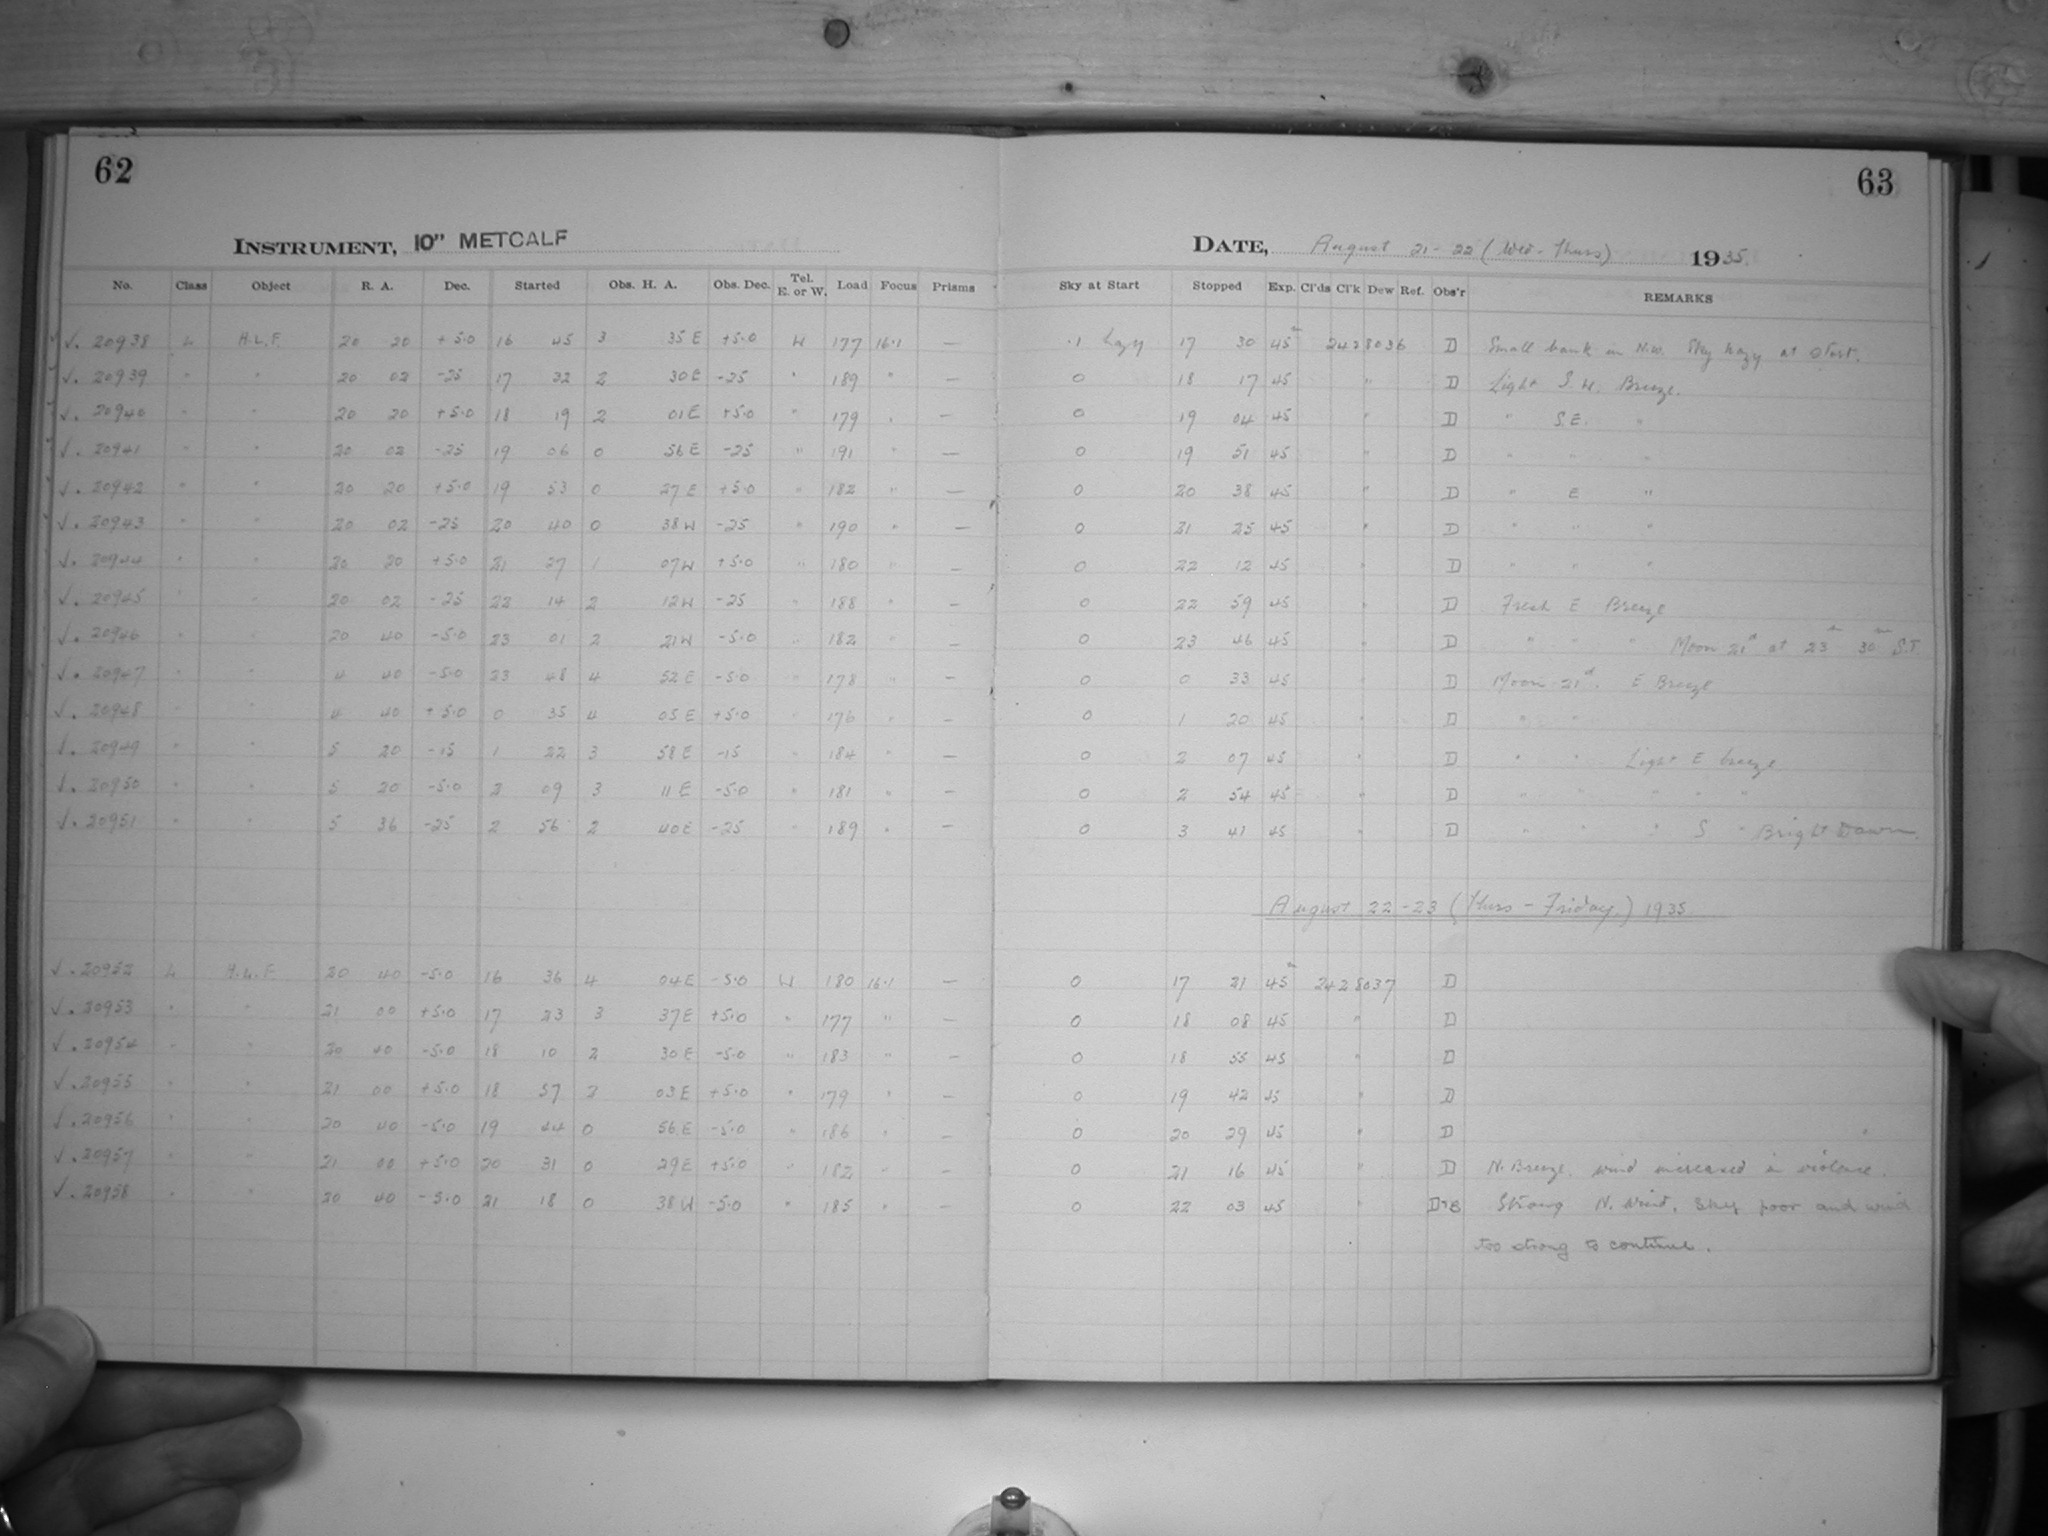 62
63
INSTRUMENT, 10" METCALF
DATE, August 21-22 (Wed-Thurs) 1935.
No. Class Object R. A. Dec. Started Obs. H. A. Obs. Dec. Tel. E. or W. Load Focus Prisms Sky at Start Stopped Exp. Cl'ds Cl'k Dew Ref. Obs'r REMARKS
√. 20938 L H.L.F. 20 20 +5.0 16 45 3 35 E +5.0 W 177 16.1 — .1 Hazy 17 30 45m 2428036 D Small bank in N.W. Sky hazy at start.
√. 20939 " " 20 02 -25 17 32 2 30 E -25 " 189 " — 0 18 17 45 " D Light S.W. Breeze.
√. 20940 " " 20 20 +5.0 18 19 2 01 E +5.0 " 179 " — 0 19 04 45 " D " S.E. "
√. 20941 " " 20 02 -25 19 06 0 56 E -25 " 191 " — 0 19 51 45 " D " " "
√. 20942 " " 20 20 +5.0 19 53 0 27 E +5.0 " 182 " — 0 20 38 45 " D " E "
√. 20943 " " 20 02 -25 20 40 0 38 W -25 " 190 " — 0 21 25 45 " D " " "
√. 20944 " " 20 20 +5.0 21 27 1 07 W +5.0 " 180 " — 0 22 12 45 " D " " "
√. 20945 " " 20 02 -25 22 14 2 12 W -25 " 188 " — 0 22 59 45 " D Fresh E Breeze
√. 20946 " " 20 40 -5.0 23 01 2 21 W -5.0 " 182 " — 0 23 46 45 " D " " " Moon 21d at 23h 30m S.T.
√. 20947 " " 4 40 -5.0 23 48 4 52 E -5.0 " 178 " — 0 0 33 45 " D Moon 21d. E Breeze
√. 20948 " " 4 40 +5.0 0 35 4 05 E +5.0 " 176 " — 0 1 20 45 " D " "
√. 20949 " " 5 20 -15 1 22 3 58 E -15 " 184 " — 0 2 07 45 " D " " Light E breeze
√. 20950 " " 5 20 -5.0 2 09 3 11 E -5.0 " 181 " — 0 2 54 45 " D " " " " "
√. 20951 " " 5 36 -25 2 56 2 40 E -25 " 189 " — 0 3 41 45 " D " " " S " Bright Dawn.
August 22-23 (Thurs-Friday.) 1935
√. 20952 L H.L.F. 20 40 -5.0 16 36 4 04 E -5.0 W 180 16.1 — 0 17 21 45m 2428037 D
√. 20953 " " 21 00 +5.0 17 23 3 37 E +5.0 " 177 " — 0 18 08 45 " D
√. 20954 " " 20 40 -5.0 18 10 2 30 E -5.0 " 183 " — 0 18 55 45 " D
√. 20955 " " 21 00 +5.0 18 57 2 03 E +5.0 " 179 " — 0 19 42 45 " D
√. 20956 " " 20 40 -5.0 19 44 0 56 E -5.0 " 186 " — 0 20 29 45 " D
√. 20957 " " 21 00 +5.0 20 31 0 29 E +5.0 " 182 " — 0 21 16 45 " D N. Breeze. wind increased in violence.
√. 20958 " " 20 40 -5.0 21 18 0 38 W -5.0 " 185 " — 0 22 03 45 " D+B Strong N. Wind, sky poor and wind
too strong to continue.